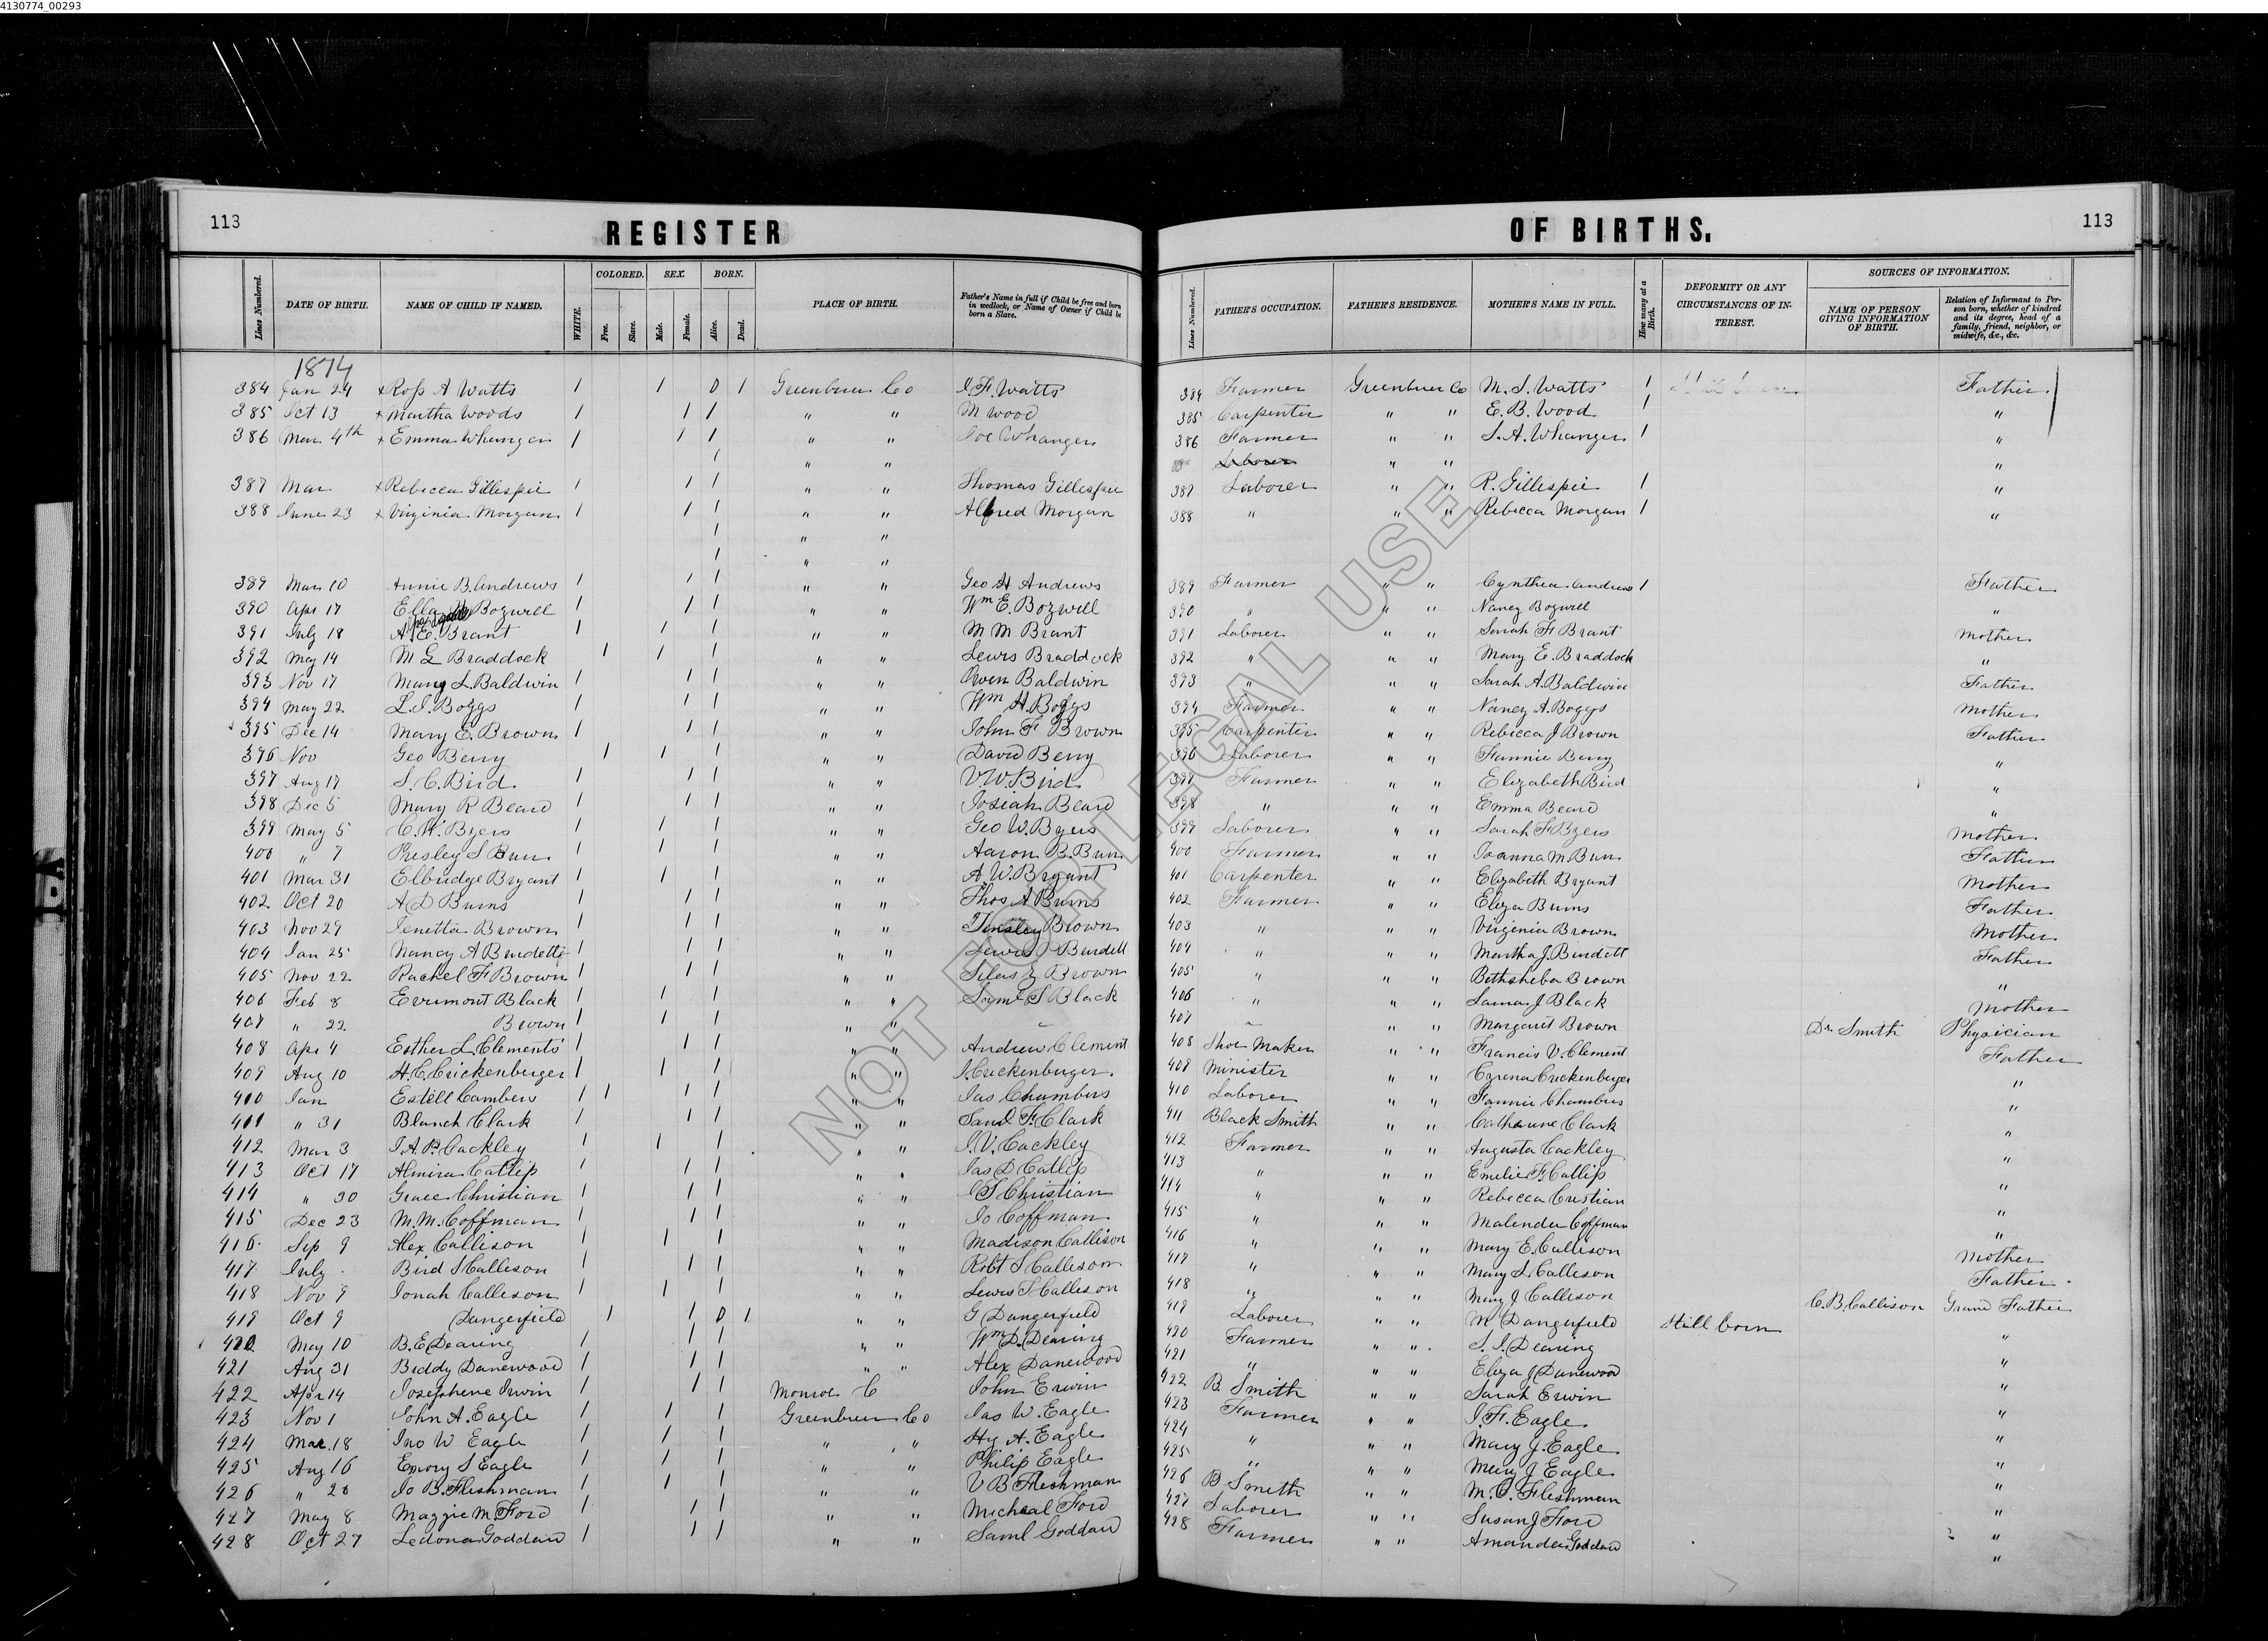 4130774_00293
113
REGISTER
OF BIRTHS.
113
Lines Numbered. DATE OF BIRTH. NAME OF CHILD IF NAMED. WHITE. COLORED. Free. Slave. SEX. Male. Female. BORN. Alive. Dead. PLACE OF BIRTH. Father's Name in full if Child be free and born in wedlock, or Name of Owner if Child be born a Slave.
Lines Numbered. FATHER'S OCCUPATION. FATHER'S RESIDENCE. MOTHER'S NAME IN FULL. How many at a Birth. DEFORMITY OR ANY CIRCUMSTANCES OF INTEREST. SOURCES OF INFORMATION. NAME OF PERSON GIVING INFORMATION OF BIRTH. Relation of Informant to Person born, whether of kindred and its degree, head of a family, friend, neighbor, or midwife, &c., &c.
1874
384 Jan 24 x Ross A Watts 1 1 0 1 Greenbrier Co J. F. Watts 384 Farmer Greenbrier Co M. S. Watts 1 Father
385 Oct 13 x Martha Woods 1 1 1 " " M Wood 385 Carpenter " " E. B. Wood 1 "
386 Mar 4th x Emma Whanger 1 1 1 " " Joe Whanger 386 Farmer " " S. A. Whanger 1 "
1 " " Laborer " " "
387 Mar x Rebecca Gillespie 1 1 1 " " Thomas Gillespie 387 Laborer " " R. Gillespie 1 "
388 June 23 x Virginia Morgan 1 1 1 " " Alfred Morgan 388 " " " Rebecca Morgan 1 "
1 " "
1 " "
389 Mar 10 Annie B. Andrews 1 1 1 " " Geo H Andrews 389 Farmer " " Cynthia Andrews 1 Father
390 Apr 17 Ella Bozwell 1 1 1 " " Wm E. Bozwell 390 " " " Nancy Bozwell "
391 July 18 A. E. Brant 1 1 1 " " M M Brant 391 Laborer " " Sarah F Brant Mother
392 May 14 M L Braddock 1 1 1 " " Lewis Braddock 392 " " " Mary E. Braddock "
393 Nov 17 Mary L. Baldwin 1 1 1 " " Owen Baldwin 393 " " " Sarah A. Baldwin Father
394 May 22 L. I. Boggs 1 1 1 " " Wm H. Boggs 394 Farmer " " Nancy A. Boggs Mother
395 Dec 14 Mary E. Brown 1 1 1 " " John F Brown 395 Carpenter " " Rebecca J Brown Father
396 Nov Geo Berry 1 1 1 " " David Berry 396 Laborer " " Fannie Berry "
397 Aug 17 S. C. Bird 1 1 1 " " V. W. Bird 397 Farmer " " Elizabeth Bird "
398 Dec 5 Mary R Beard 1 1 1 " " Josiah Beard 398 " " " Emma Beard
399 May 5 C. W. Byers 1 1 1 " " Geo W. Byers 399 Laborer " " Sarah F Byers Mother
400 " 7 Presley S Burr 1 1 1 " " Aaron B. Burr 400 Farmer " " Joanna M Burr Father
401 Mar 31 Elbridge Bryant 1 1 1 " " A. W. Bryant 401 Carpenter " " Elizabeth Bryant Mother
402 Oct 20 A D Burns 1 1 1 " " Thos. A Burns 402 Farmer " " Eliza Burns Father
403 Nov 29 Jenetta Brown 1 1 1 " " Tinsley Brown 403 " " " Virginia Brown Mother
404 Jan 25 Nancy A Burdette 1 1 1 " " Lewis Burdett 404 " " " Martha J. Burdett Father
405 Nov 22 Rachel F Brown 1 1 1 " " Silas Brown 405 " " " Bethsheba Brown "
406 Feb 8 Evrimont Black 1 1 1 " " Saml S Black 406 " " " J Black Mother
407 " 22 Brown 1 1 1 " " 407 " " Margaret Brown Dr. Smith Physician
408 Apr 4 Esther L. Clements 1 1 1 " " Andrew Clement 408 Shoe Maker " " Francis V. Clement Father
409 Aug 10 H. C. Crickenberger 1 1 1 " " J. Crickenberger 409 Minister " " Cyrena Crickenberger "
410 Jan Estell Cambers 1 1 1 1 " " Jas Chambers 410 Laborer " " Fannie Chambers "
411 " 31 Blanch Clark 1 1 1 " " Saml F. Clark 411 Black Smith " " Catharine Clark "
412 Mar 3 J. A. P. Cackley 1 1 1 " " J. V. Cackley 412 Farmer " " Augusta Cackley "
413 Oct 17 Almira Catlip 1 1 1 " " Jas D Catlip 413 " " " Emelie F. Catlip "
414 " 30 Grace Christian 1 1 1 " " S Christian 414 " " " Rebecca Cristian "
415 Dec 23 M. M. Coffman 1 1 1 " " Jo Coffman 415 " " " Malinda Coffman "
416 Sep 9 Alex Callison 1 1 1 " " Madison Callison 416 " " " Mary E. Callison Mother
417 July Bird S Callison 1 1 1 " " Robt S Callison 417 " " " Mary S. Callison Father
418 Nov 9 Jonah Calleson 1 1 1 " " Lewis S Calleson 418 " " " Mary J Callison C. B. Callison Grand Father
419 Oct 9 Dangerfield 1 1 0 1 " " G Dangerfield 419 Laborer " " N Dangerfield Still born "
420 May 10 B. E Dearing 1 1 1 " " Wm D. Dearing 420 Farmer " " S. J. Dearing "
421 Aug 31 Biddy Danewood 1 1 1 " " Alex Danewood 421 " " " Eliza J Danewood "
422 Apr 14 Josephene Irwin 1 1 1 Monroe C John Erwin 422 B Smith " " Sarah Erwin "
423 Nov 1 John A. Eagle 1 1 1 Greenbrier Co Jas W. Eagle 423 Farmer " " J. F. Eagle "
424 Mar. 18 Jno W Eagle 1 1 1 " " Hy A. Eagle 424 " " " Mary J. Eagle "
425 Aug 16 Emory S Eagle 1 1 1 " " Philip Eagle 425 " " " Mary J Eagle "
426 " 20 Jo B. Fleshman 1 1 1 " " V B Fleshman 426 B Smith " " M. C. Fleshman "
427 May 8 Maggie M. Ford 1 1 1 " " Micheal Ford 427 Laborer " " Susan J Ford "
428 Oct 27 Ledona Goddard 1 1 1 " " Saml Goddard 428 Farmer " " Amanda Goddard "
NOT FOR LEGAL USE